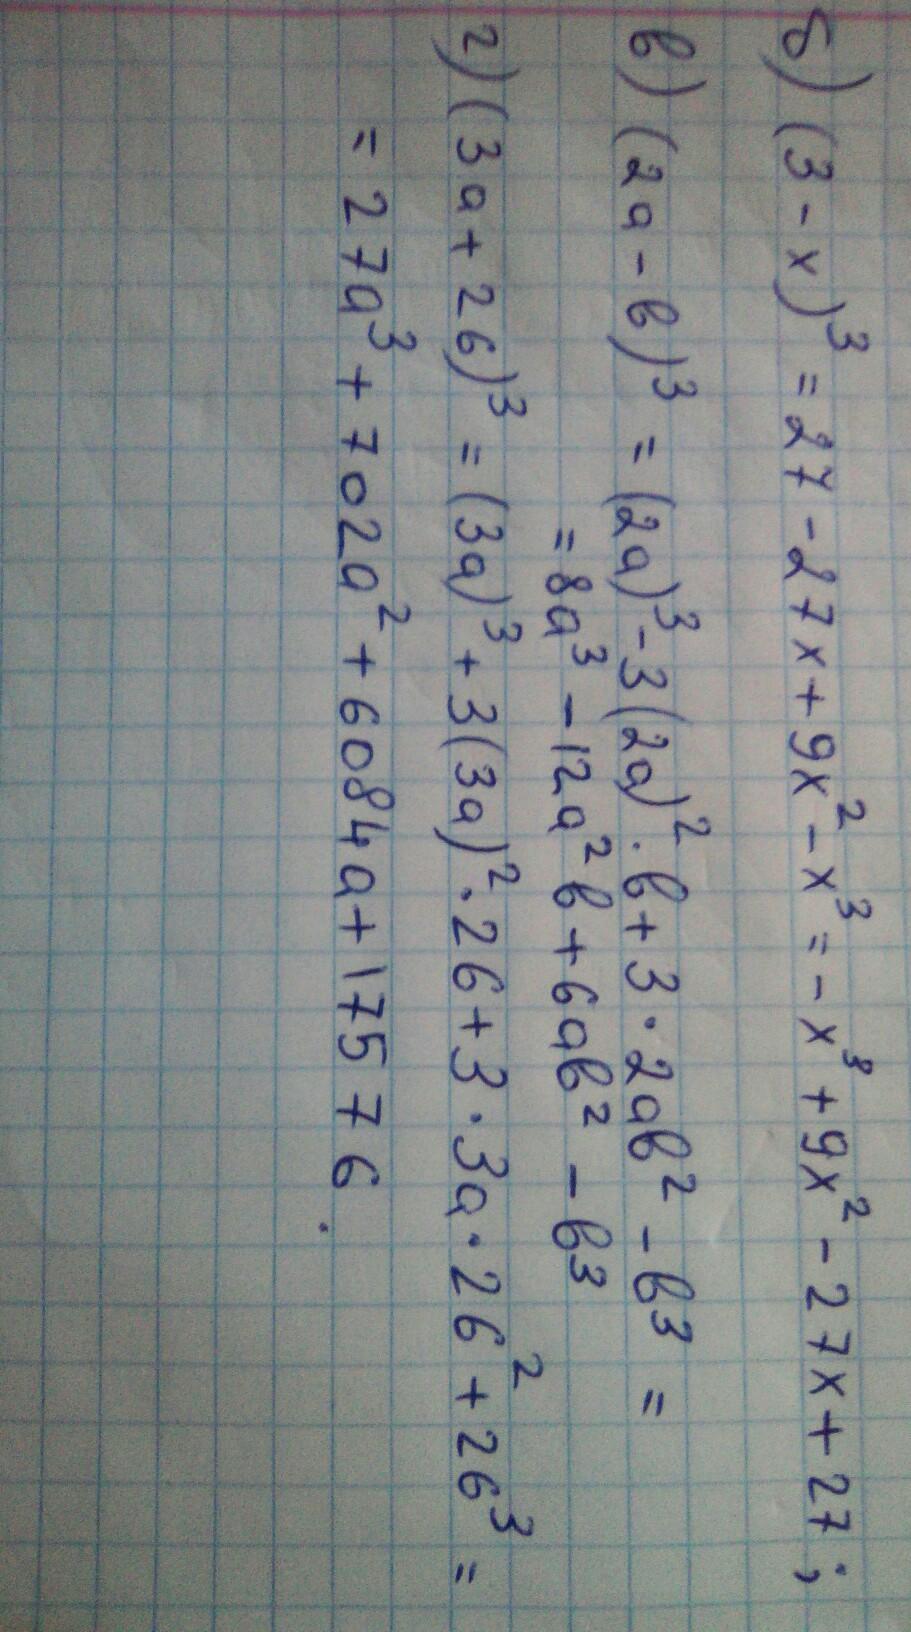 б) (3 - x)³ = 27 - 27x + 9x² - x³ = - x³ + 9x² - 27x + 27;
в) (2a - в)³ = (2a)³ - 3(2a)² · в + 3 · 2aв² - в³ =
= 8a³ - 12a²в + 6aв² - в³
г) (3a + 26)³ = (3a)³ + 3(3a)² · 26 + 3 · 3a · 26² + 26³ =
= 27a³ + 702a² + 6084a + 17576.